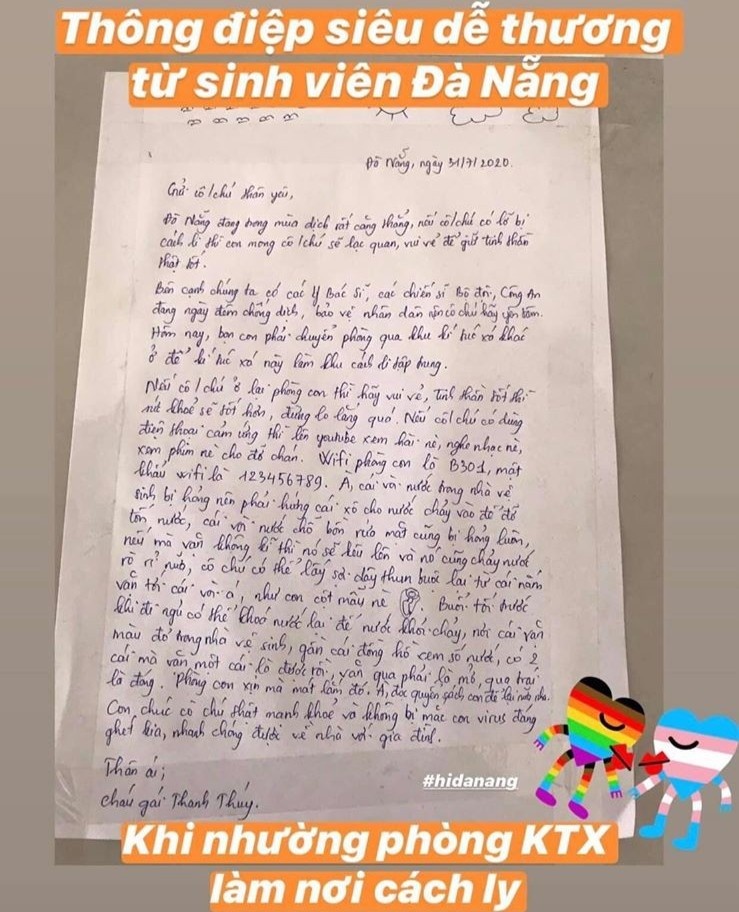 Thông điệp siêu dễ thương
từ sinh viên Đà Nẵng
Đà Nẵng, ngày 31/7/2020.
Gửi cô/chú thân yêu,
Đà Nẵng đang trong mùa dịch rất căng thẳng, nếu cô/chú có lỡ bị
cách li thì con mong cô/chú sẽ lạc quan, vui vẻ để giữ tinh thần
thật tốt.
Bên cạnh chúng ta có các Y Bác Sĩ, các chiến sĩ Bộ đội, Công An
đang ngày đêm chống dịch, bảo vệ nhân dân nên cô chú hãy yên tâm.
Hôm nay, bọn con phải chuyển phòng qua khu kí túc xá khác
ở để kí túc xá này làm khu cách li tập trung.
Nếu cô/chú ở lại phòng con thì hãy vui vẻ, tinh thần tốt thì
sức khoẻ sẽ tốt hơn, đừng lo lắng quá. Nếu cô/chú có dùng
điện thoại cảm ứng thì lên youtube xem hài nè, nghe nhạc nè,
xem phim nè cho đỡ chán. Wifi phòng con là B301, mật
khẩu wifi là 123456789. À, cái vòi nước trong nhà vệ
sinh bị hỏng nên phải hứng cái xô cho nước chảy vào đó đỡ
tốn nước, cái vòi nước chỗ bồn rửa mặt cũng bị hỏng luôn,
nếu mà vặn không kĩ thì nó sẽ kêu lên và nó cũng chảy nước
rò rỉ nữa, cô chú có thể lấy sợi dây thun buộc lại từ cái nắm
vặn tới cái vòi ạ, như con cột mẫu nè. Buổi tối trước
khi đi ngủ có thể khoá nước lại để nước khỏi chảy, nơi cái van
màu đỏ trong nhà vệ sinh, gần cái đồng hồ xem số nước, có 2
cái mà vặn một cái là được rồi, vặn qua phải là mở, qua trái
là đóng. Phòng con xịn mà mát lắm đó. À, đọc quyển sách con để lại nữa nha.
Con chúc cô chú thật mạnh khoẻ và không bị mắc con virus đáng
ghét kia, nhanh chóng được về nhà với gia đình.
Thân ái;
cháu gái Thanh Thúy.
#hidanang
Khi nhường phòng KTX
làm nơi cách ly